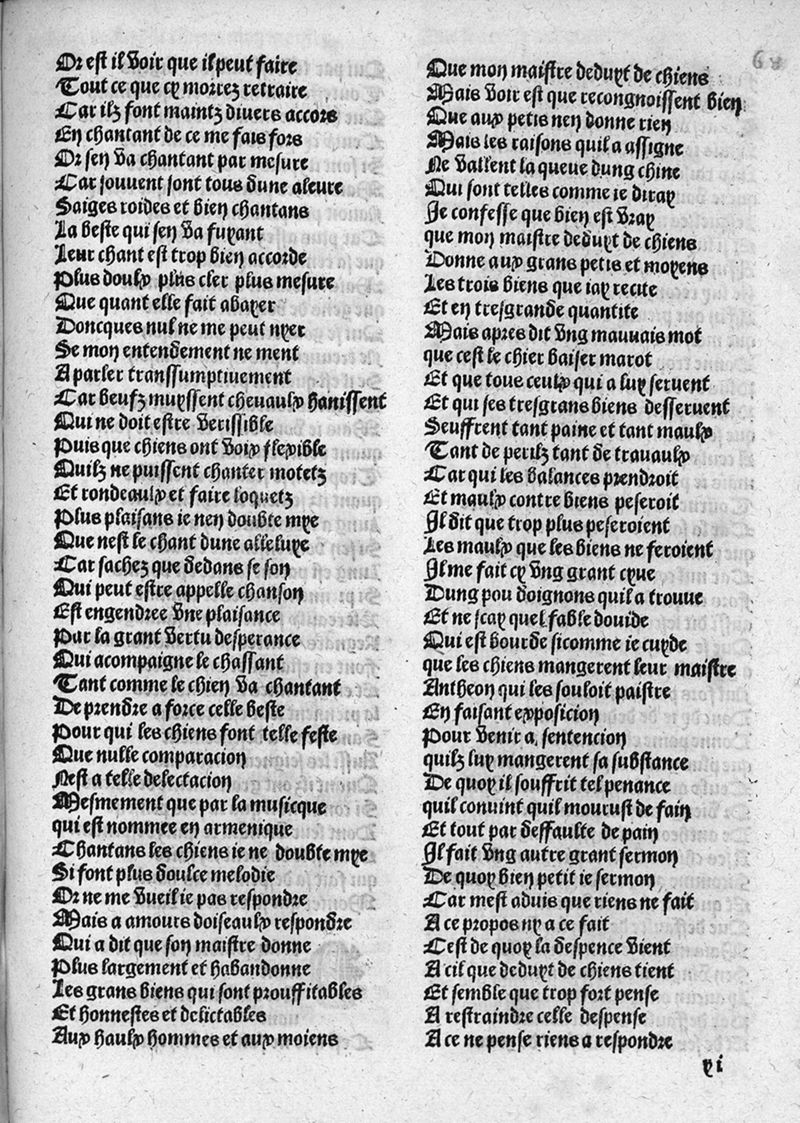 Or est il voir que il peut faire
Tout ce que cy morrez retraire
Car ilz font maintz divers accors
En chantant de ce me fais fors
Or sen va chantant par mesure
Car souvent sont tous dune aleure
Saiges roides et bien chantans
La beste qui sen va fuyant
Leur chant est trop bien accorde
Plus doulx plus cler plus mesure
Que quant elle fait abayer
Doncques nul ne me peut nyer
Se mon entendement ne ment
A parler transsumptivement
Car beufz muyssent chevaulx hanissent
Qui ne doit estre verissible
Puis que chiens ont voix flexible
Quilz ne puissent chanter motetz
Et rondeaulx et faire loquetz
Plus plaisans ie nen doubte mye
Que nest le chant dune alleluye
Car sachez que dedans se son
Qui peut estre appelle chanson
Est engendree vne plaisance
Par la grant vertu desperance
Qui acompaigne le chassant
Tant comme le chien va chantant
De prendre a force celle beste
Pour qui les chiens font telle feste
Que nulle comparacion
Nest a telle delectacion
Mesmement que par la musicque
qui est nommee en armenique
Chantans les chiens ie ne doubte mye
Si font plus doulce melodie
Or ne me vueil ie pas respondre
Mais a amours doiseaulx respondre
Qui a dit que son maistre donne
Plus largement et habandonne
Les grans biens qui sont prouffitables
Et honnestes et delictables
Aux haulx hommes et aux moiens
Que mon maistre deduyt de chiens
Mais voir est que recongnoissent bien
Que aux petis nen donne rien
Mais les raisons quil a assigne
Ne vallent la queue dung chine
Qui sont telles comme ie diray
Je confesse que bien est vray
que mon maistre deduyt de chiens
Donne aux grans petis et moyens
Les trois biens que iay recite
Et en tresgrande quantite
Mais apres dit vng mauvais mot
que cest le chier baiser marot
Et que tous ceulx qui a luy servent
Et qui ses tresgrans biens desservent
Seuffrent tant paine et tant maulx
Tant de perilz tant de travaulx
Car qui les balances prendroit
Et maulx contre biens peseroit
Il dit que trop plus peseroient
Les maulx que les biens ne feroient
Il me fait cy vng grant cyue
Dung pou doignons quil a trouve
Et ne scay quel fable douide
Qui est bourde sicomme ie cuyde
que les chiens mangerent leur maistre
Antheon qui les souloit paistre
En faisant exposicion
Pour venir a sentencion
quilz luy mangerent sa substance
De quoy il souffrit tel penance
quil convint quil mourust de fain
Et tout par deffaulte de pain
Il fait vng autre grant sermon
De quoy bien petit ie sermon
Car mest aduis que riens ne fait
A ce propos ny a ce fait
Cest de quoy la despence vient
A cil que deduyt de chiens tient
Et semble que trop fort pense
A restraindre celle despense
A ce ne pense riens a respondre
yi